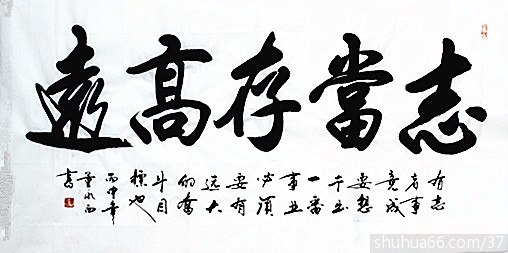 志當存高遠
有志
者事
竟成
要想
干出
一番
事业
必须
要有
远大
的奋
斗目
标也
丙申年
书
shuhua66.com/37